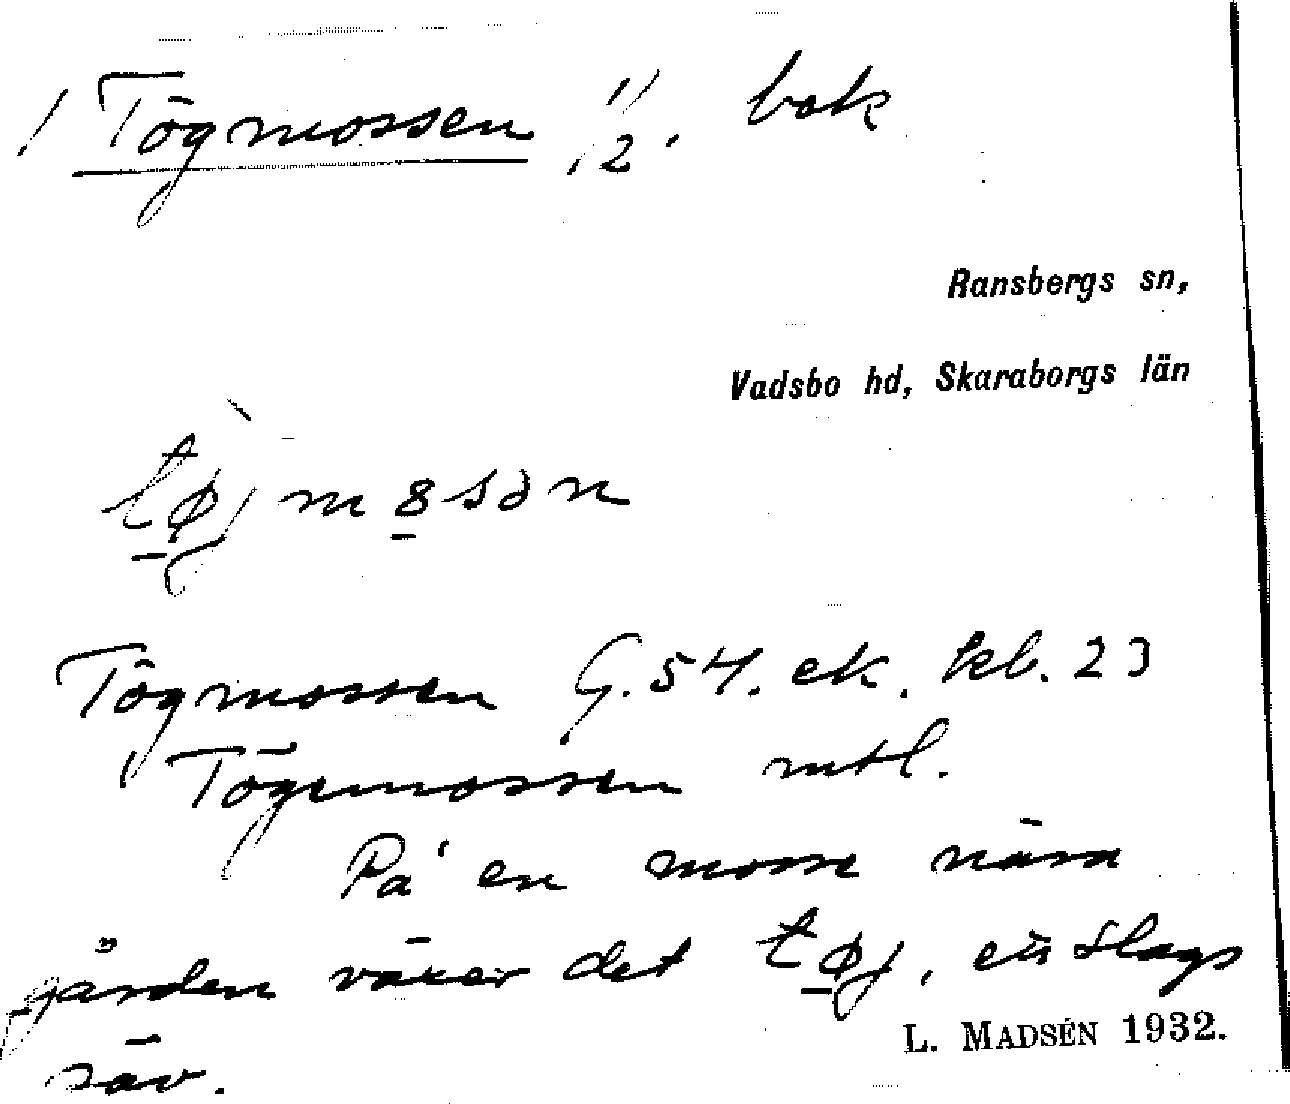 Tögmossen 1/2. bok
Ransbergs sn,
Vadsbo hd, Skaraborgs län
tøjmosən
Tögmossen G. 54. ek. kb. 23
" Tögemossen mtl.
På en mosse nära
gården växer det tøj, ett slags
säv.
L. MADSÉN 1932.